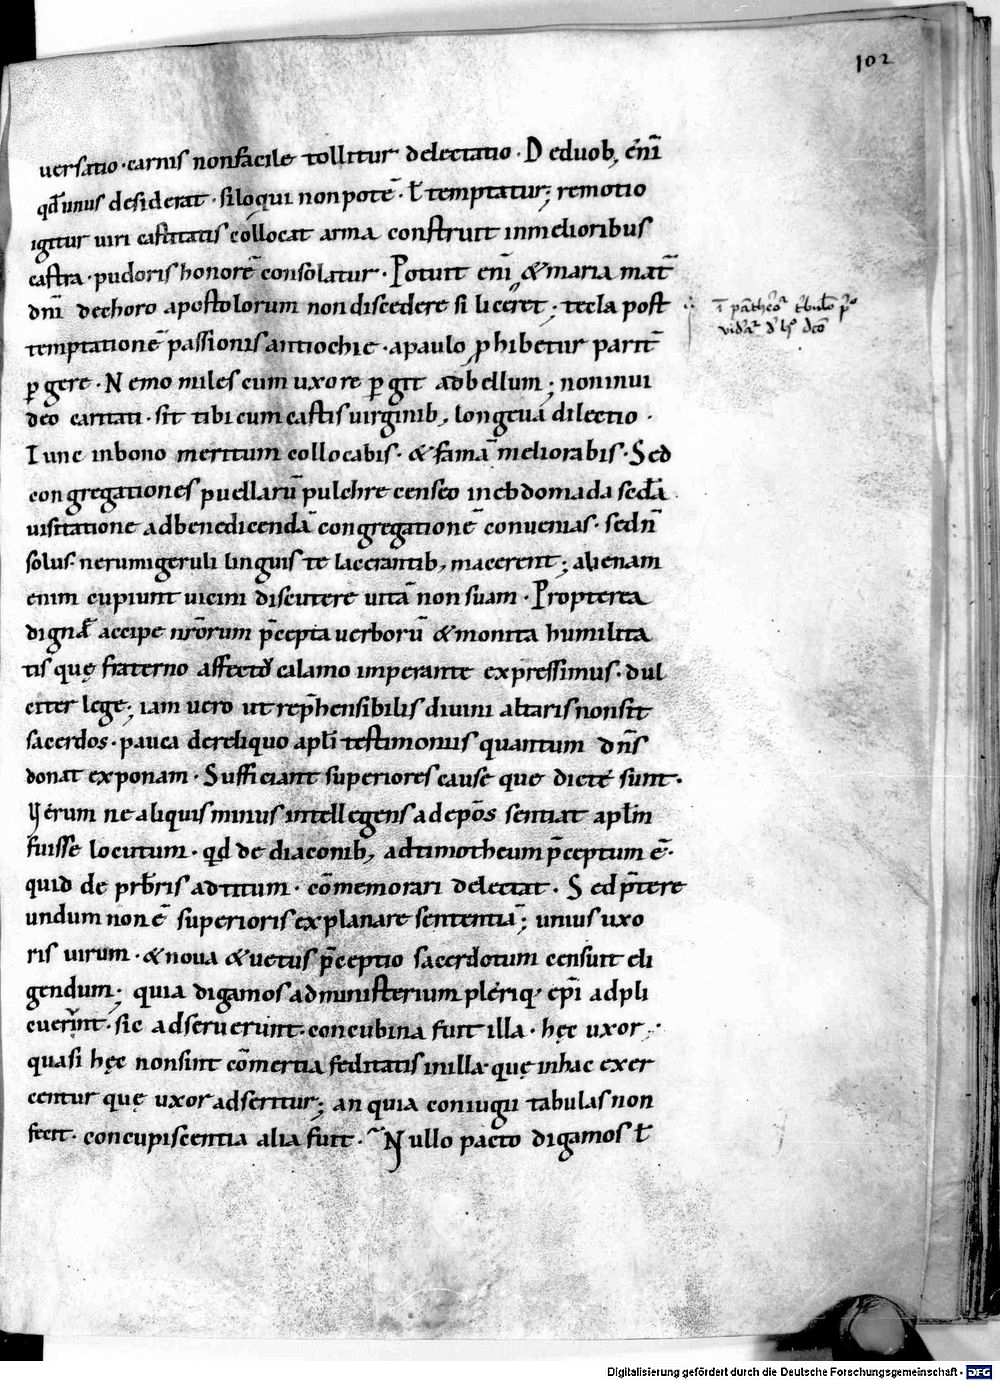 102
uersatio · carnis non facile tollitur delectatio · De duob; eni᷑
qđ unus desiderat · si loqui non pote᷑ · ł temptatur; remotio
igitur uiri castitatis collocat arma construit in melioribus
castra · pudoris honorē consolatur · Potuit eni᷑ & maria mat̄
dn̄i de choro apostolorum non discedere si liceret; tecla post
temptationē passionis antiochie · a paulo ꝓhibetur parit̄
ꝑgere · Nemo miles cum uxore ꝑgit ad bellum; non inui
deo caritati · sit tibi cum castis uirginib; longeua dilectio ·
Iunc in bono meritum collocabis · & famā meliorabis · Sed
congregationes puellarū pulchre censeo in ebdomada sedā
uisitatione ad benedicendā congregationē conuenias · sed n̄
solus · ne rumigeruli linguis te lacerantib; macerent; alienam
enim cupiunt uicini discutere uitā non suam · Propterea
dignā accipe nr̄orum p̄cepta uerborū & monita humilita
tis quę fraterno affectu calamo imperante expressimus · dul
citer lege; iam uero ut rep̄hensibilis diuini altaris non sit
sacerdos · pauca de reliquo apl̄i testimoniis quantum dn̄s
donat exponam · Sufficiant superiores cause que dicte sunt ·
Uerum ne aliquis minus intellegens ad ep̄os sentiat apl̄m
fuisse locutum · qđ de diaconib; ad timotheum p̄ceptum ē ·
quid de prb̄ris ad titum · cōmemorari delectat · Sed p̄tere
undum non ē superioris explanare sententiā; unius uxo
ris uirum · & noua & uetus p̄ceptio sacerdotum censuit eli
gendum; quia digamos ad ministerium pleriq; ep̄i adpli
cuerint · sic adseruerunt · concubina fuit illa · hęc uxor ·
quasi hęc non sint cōmertia feditatis in illa · quę in hac exer
centur quę uxor adseritur; an quia coniugii tabulas non
fecit · concupiscentia alia fuit · Nullo pacto digamos ł
Digitalisierung gefördert durch die Deutsche Forschungsgemeinschaft · DFG